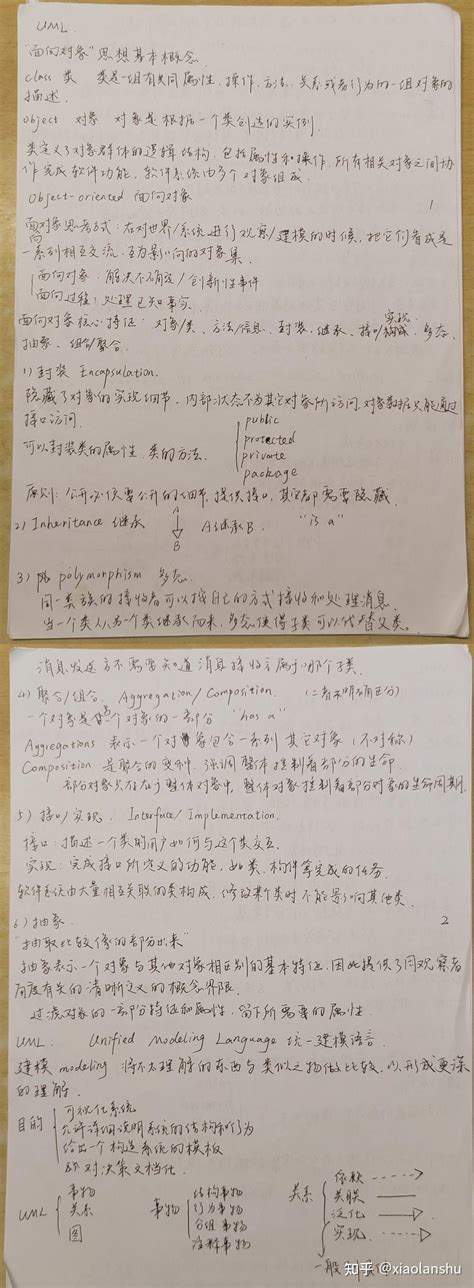 UML.
"面向对象"思想基本概念.
class 类 类是一组有共同属性、操作、方法、关系或者行为的一组对象的
描述.
object 对象 对象是根据一个类创造的实例.
类定义了对象群体的逻辑结构,包括属性和操作,所有相关对象之间协
作完成软件功能,软件系统由多个对象组成.
object-oriented 面向对象
1
面向对象思考方式:在对世界/系统进行观察/建模的时候,把它们看成是
一系列相互交流、互为影响的对象集.
面向对象:解决不确定/创新性事件
面向过程:处理已知事实.
面向对象核心特征:对象/类、方法/信息、封装、继承、接口/实现、多态、
抽象、组合/聚合.
1) 封装 Encapsulation.
隐藏了对象的实现细节,内部状态不为其它对象所访问.对象数据只能通过
接口访问.
可以封装类的属性、类的方法.
public
protected
private
package
原则:公开必须要公开的细节,提供接口,其它都需要隐藏.
2) Inheritance 继承 A B A继承B. "is a"
3) polymorphism 多态.
同一类族的接收者可以按自己的方式接收和处理消息.
当一个类从另一个类继承而来,多态使得子类可以代替父类。
消息发送方不需要知道消息接收方属于哪个子类.
4) 聚合/组合. Aggregation/Composition. (二者不明确区分)
一个对象是另一个对象的一部分 "has a"
Aggregations 表示一个对象包含一系列其它对象(不对称)
Composition 是聚合的变种.强调整体控制着部分的生命.
部分对象只存在于整体对象中,整体对象控制着部分对象的生命周期.
5) 接口/实现. Interface/Implementation.
接口:描述一个类的用户如何与这个类交互.
实现:完成接口所定义的功能,如类、构件等完成的任务.
软件系统由大量相互关联的类构成,修改某个类时不能影响其他类.
6) 抽象.
2
"抽取比较像的部分出来"
抽象表示一个对象与其他对象相区别的基本特征,因此提供了同观察者
角度有关的清晰定义的概念界限.
过滤对象的一部分特征和属性,留下所需要的属性.
UML. Unified Modeling Language 统一建模语言.
建模 modeling 将不太理解的东西与类似之物做比较,以形成更深
的理解.
目的
可视化系统
允许详细说明系统的结构和行为
给出一个构造系统的模板
对决策文档化.
UML 事物 关系 图
事物 结构事物 行为事物 分组事物 注释事物
关系 依赖 关联 泛化 实现
一般
知乎 @xiaolanshu